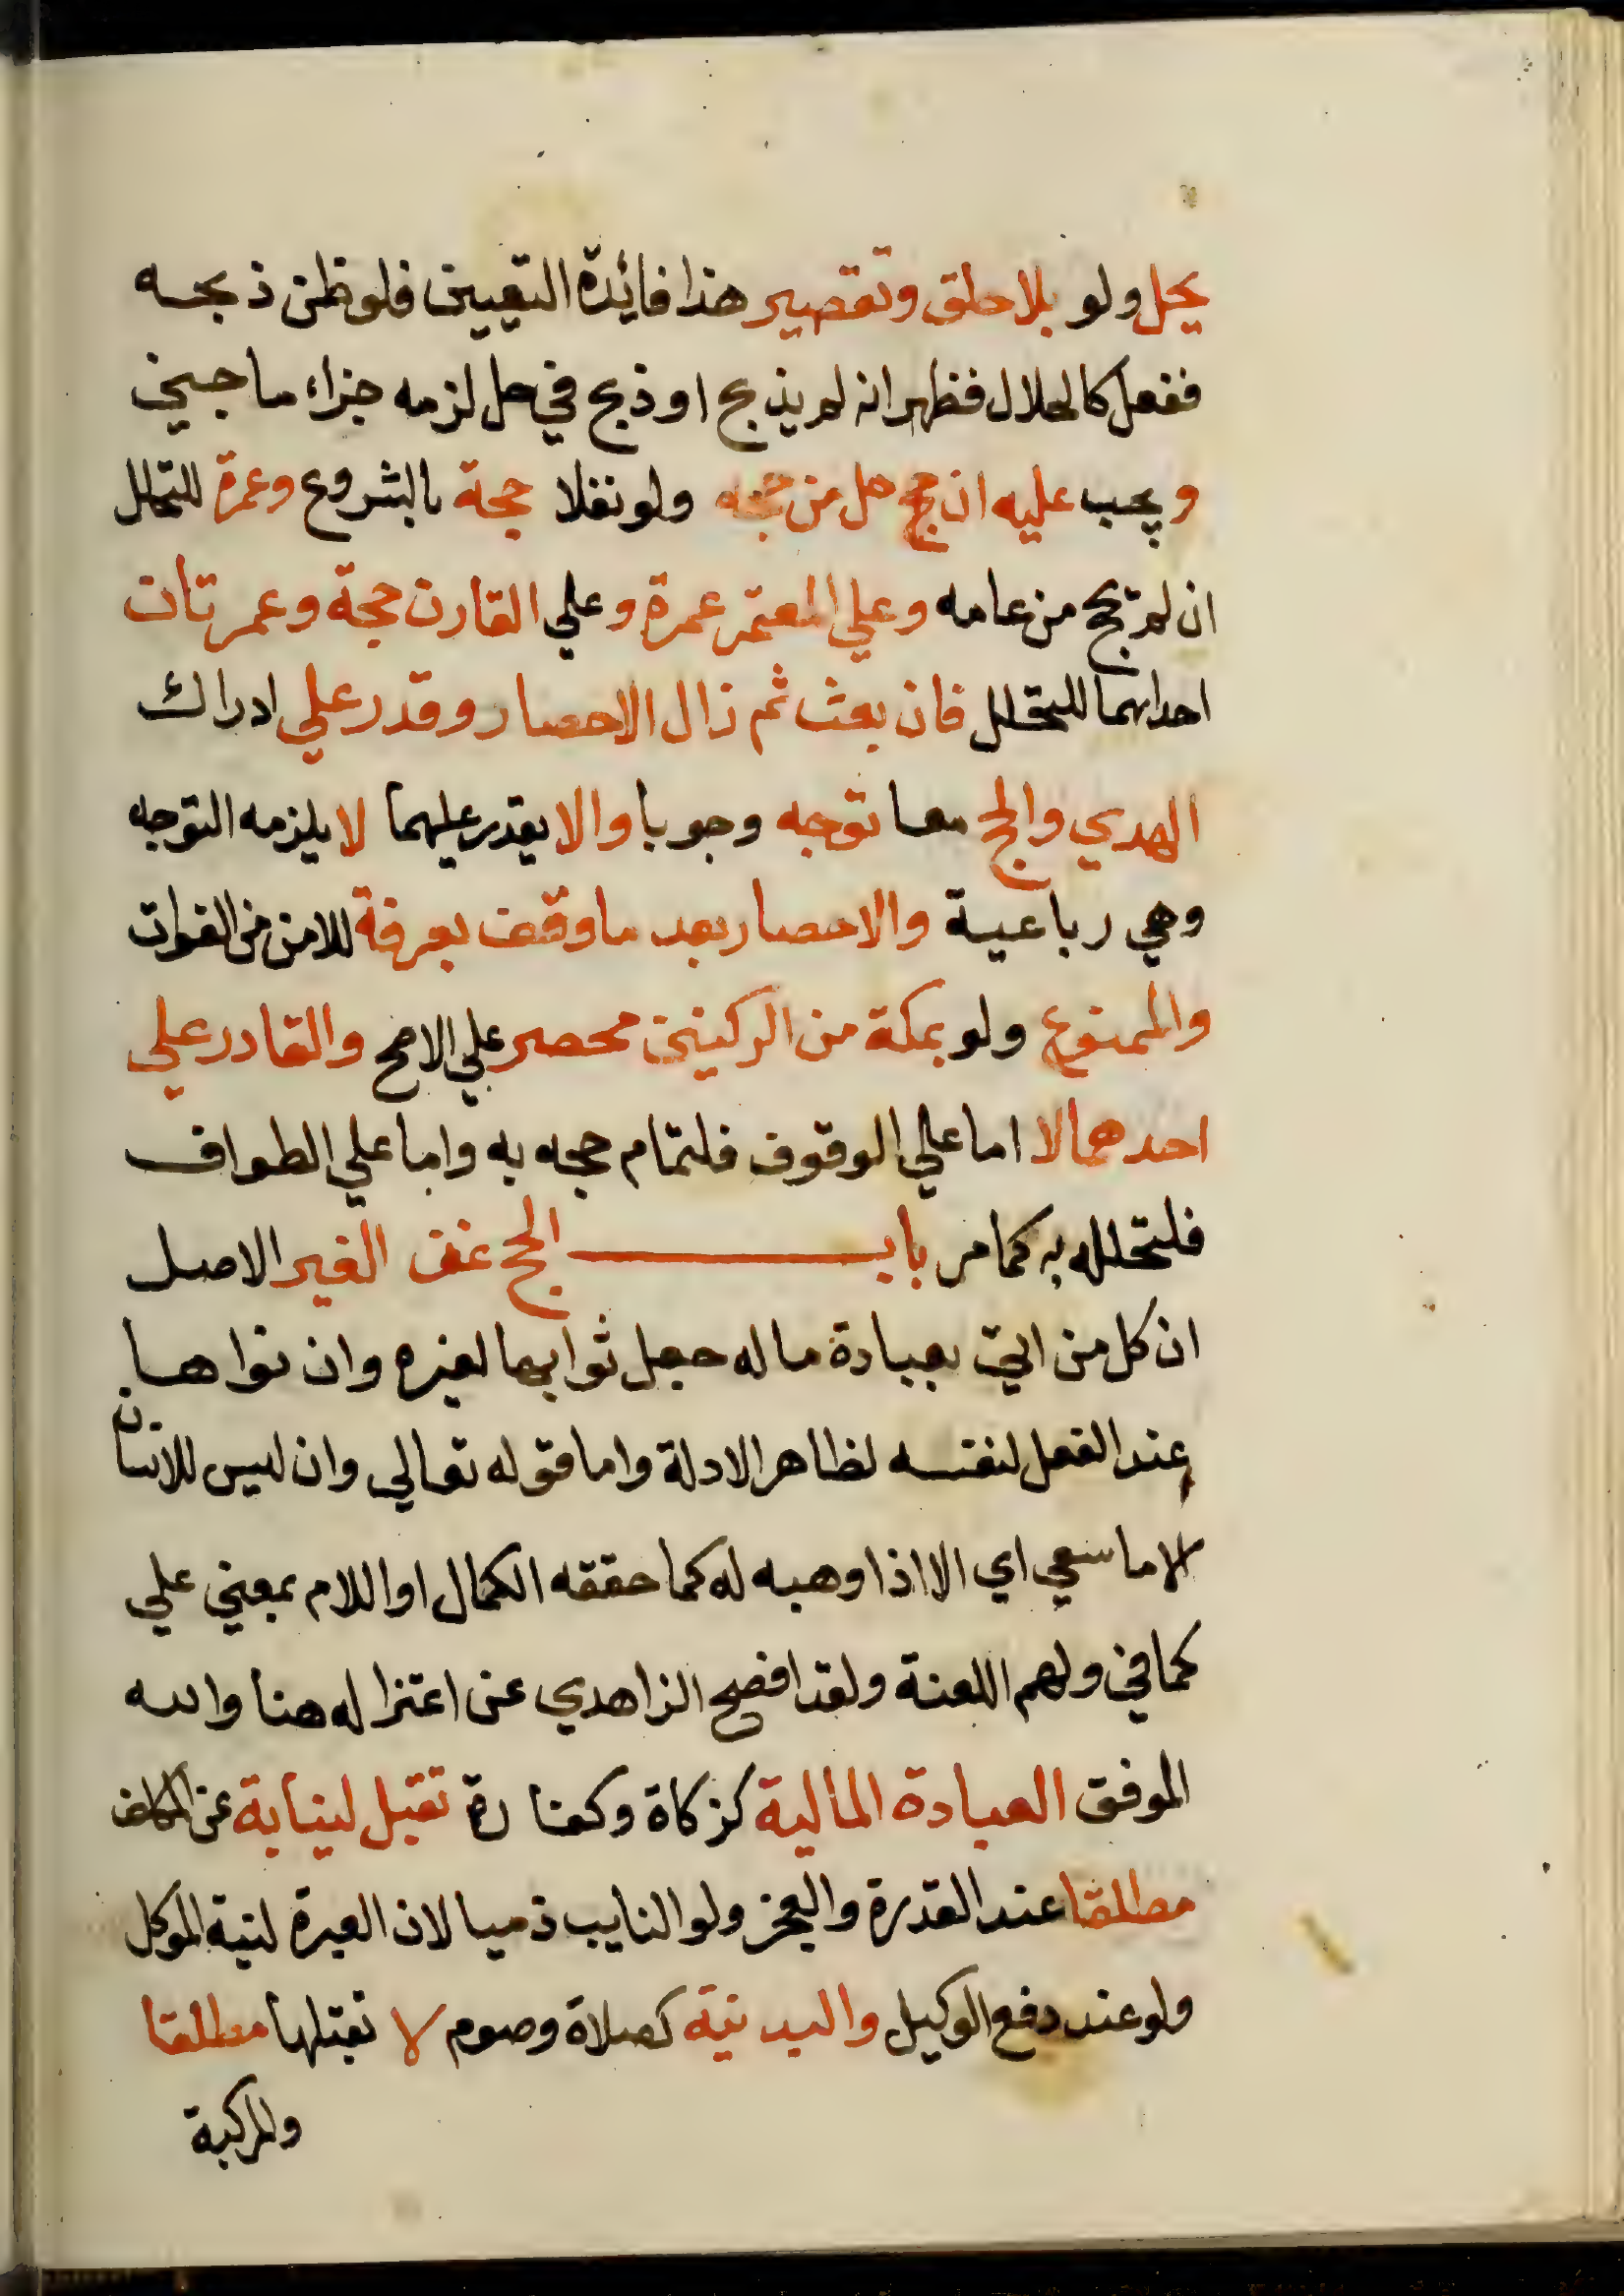 يحل ولو بلا حلق وتقصير هذا فائدة التعيين فلو ظن ذبحه
ففعل كالحلال فظهر انه لم يذبح او ذبح في حل لزمه جزاء ما جني
و يجب عليه ان حج حل من حجه ولو نفلا حجة بالشروع وعمرة للتحلل
ان لم يحج من عامه وعلي المعتمر عمرة وعلي القارن حجة وعمرتان
احداهما للتحلل فان بعث ثم زال الاحصار وقدر علي ادراك
الهدي والحج معا توجه وجوبا والا يقدر عليهما لا يلزمه التوجه
وهي رباعية والاحصار بعد ما وقف بعرفة للامن من الفوات
والممنوع ولو بمكة من الركنين محصر علي الاصح والقادر علي
احدهما لا اما علي الوقوف فلتمام حجه به واما علي الطواف
فلتحلله به كما مر باب الحج عن الغير الاصل
ان كل من اتي بعبادة ما له جعل ثوابها لغيره وان نواها
عند الفعل لنفسه لظاهر الادلة واما قوله تعالي وان ليس للانسان
الا ما سعي اي الا اذا وهبه له كما حققه الكمال او اللام بمعني علي
كما في ولهم اللعنة ولقد افصح الزاهدي عن اعتزاله هنا والله
الموفق العبادة المالية كزكاة وكفارة تقبل لنيابة عن المكلف
مطلقا عند القدرة والعجز ولو النايب ذميا لان العبرة لنية الموكل
ولو عند دفع الوكيل والبدنية كصلاة وصوم لا تقبلها مطلقا
والمركبة